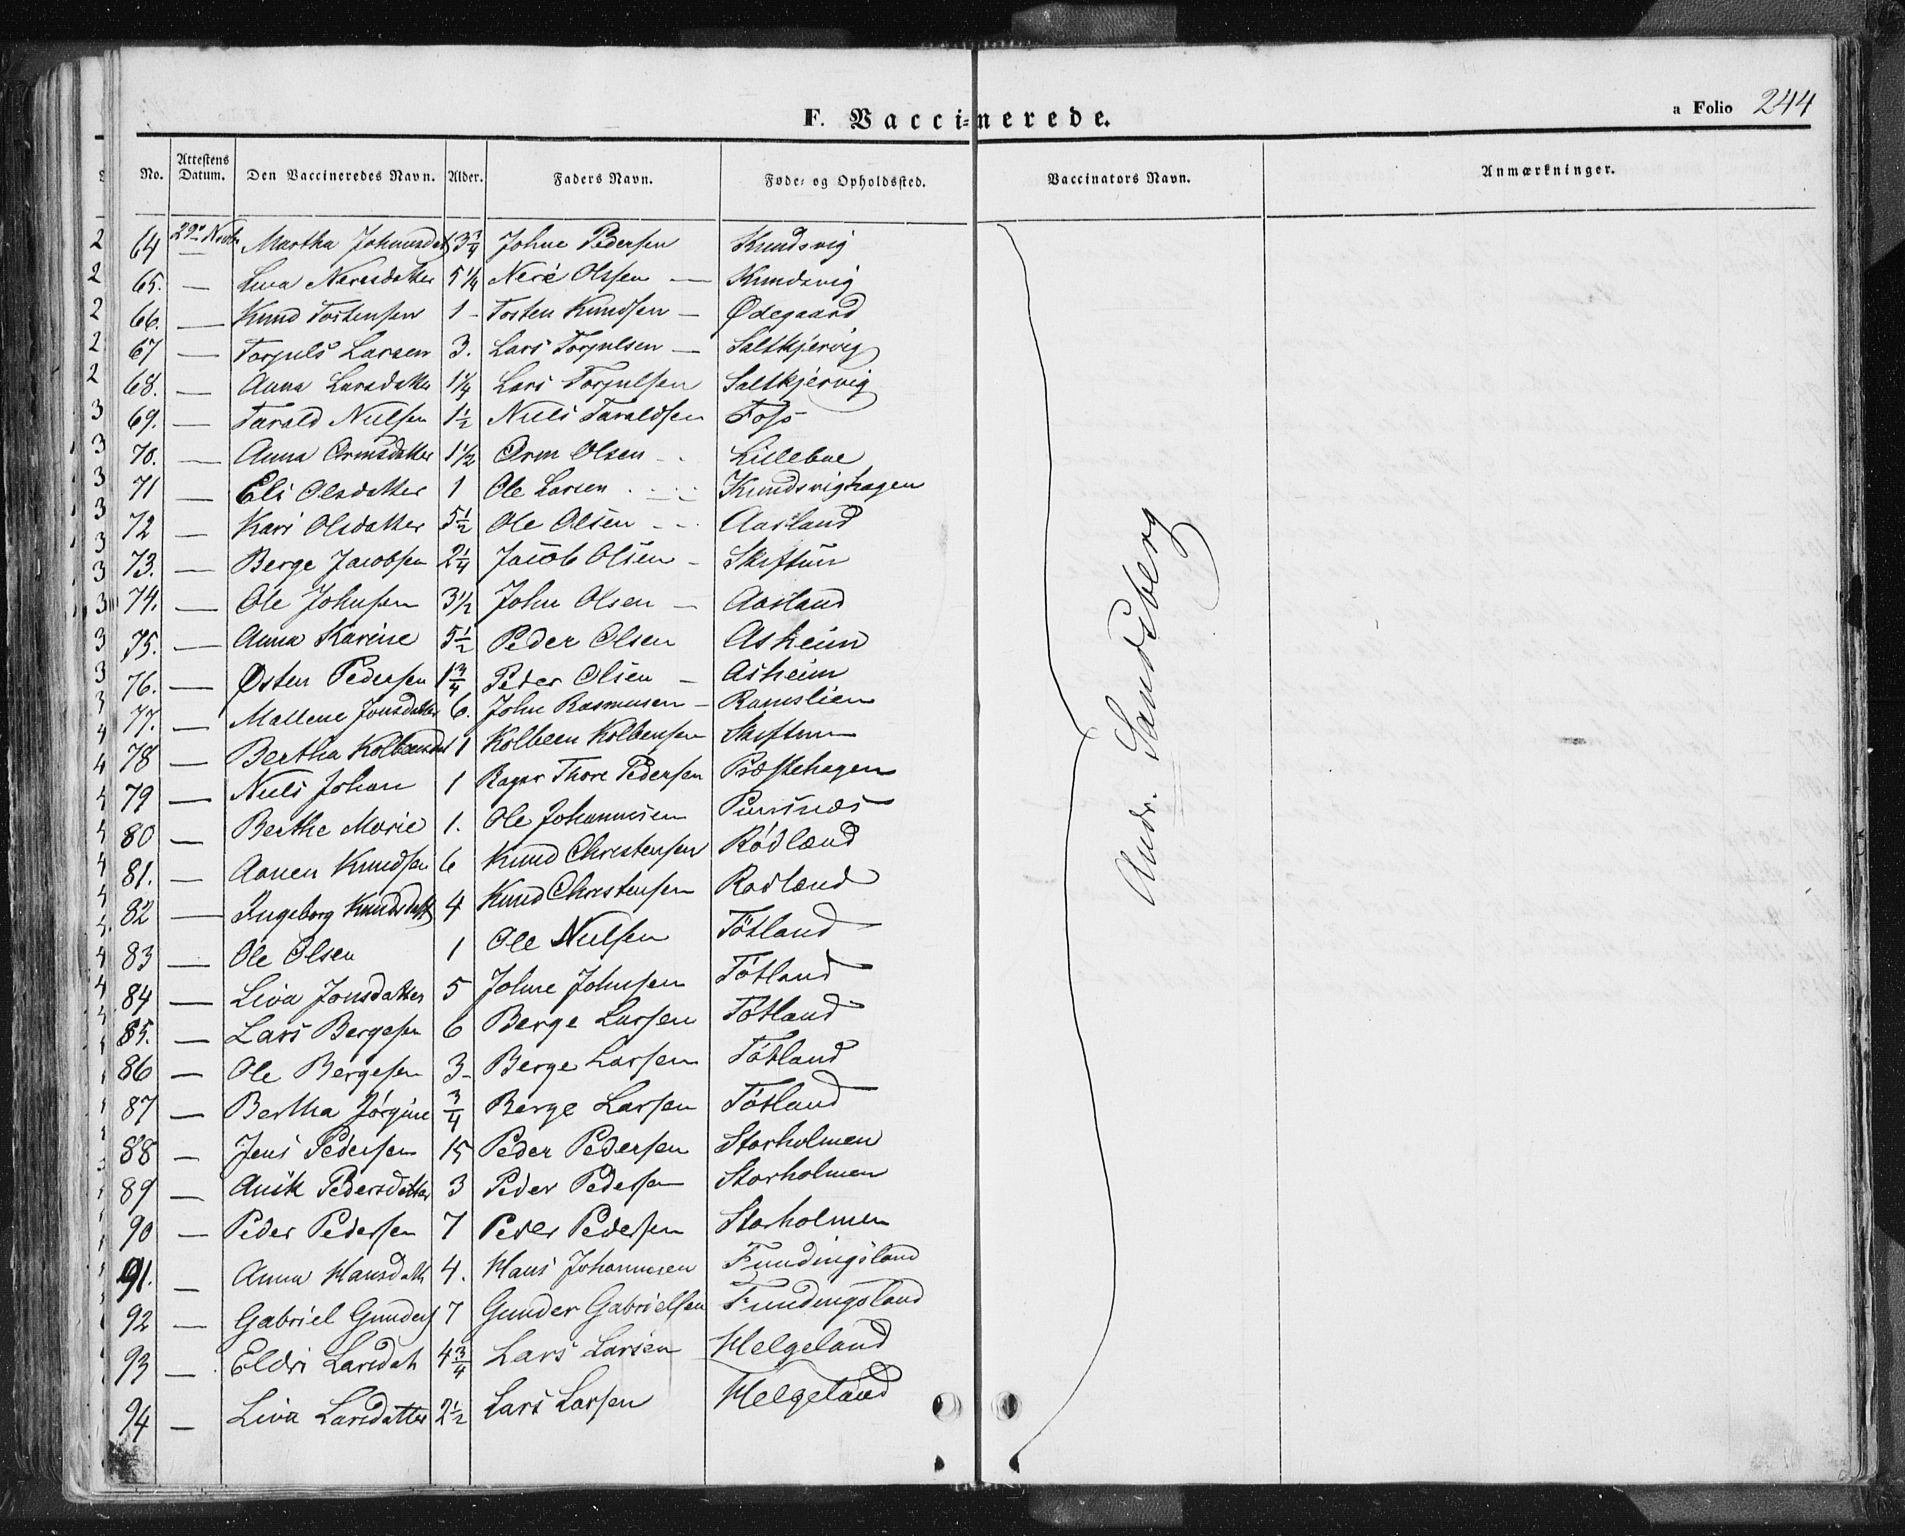 F. Vaccinerede.
a Folio 244
No. Attestens Datum. Den Vaccineredes Navn. Alder. Faders Navn. Føde- og Opholdssted. Vaccinators Navn. Anmærkninger.
64 29de Novbr Martha Johnsdatt 3 3/4 Johne Pedersen Knudsvig
65. — Liva Neresdatter 5 1/4 Nere Olssen — Knudsvig
66. — Knud Tostensen 1 - Tosten Knudsen — Ødegaard
67 — Torjuls Larsen 3. Lars Torjulsen — Saltkjervig
68. — Anna Larsdatter 1 1/4 Lars Torjulsen Saltkjervig
69. — Tarald Nielsen 1 1/2 Niels Taraldsen Foss
70. — Anna Ormsdatter 1 1/2 Orm Olsen Lilleboe
71 — Eli Olsdatter 1 Ole Larsen Knudsvighagen
72 — Kari Olsdatter 5 1/2 Ole Olsen Aasland
73. — Berge Jacobsen 2 1/4 Jacob Olsen - Skiftun
74. — Ole Johnsen 3 1/2 John Olsen — Aasland
75. — Anna Karine 5 1/2 Peder Olsen Asheim
76. — Østen Pedersen 1 3/4 Peder Olsen — Asheim
77. — Mallene Jonsdatter 6. John Rasmusen - Ramslien
78 — Bertha Kolbensdr 1 Kolbeen Kolbensen Skiftun
79 — Niels Johan 1 Thore Pedersen Præstehagen
80 — Berthe Marie 1. Ole Johannesen
81. — Aanen Knudsen 6 Knud Christensen Rødland
82 — Ingeborg Knudsdatt 4 Knud Christensen Rødland
83 — Ole Olsen 1 Ole Nielsen Tøtland
84 — Liva Jonsdatter 5 Johne Johnsen Tøtland
85. — Lars Bergesen 6 Berge Larsen Tøtland
86 — Ole Bergesen 3 - Berge Larsen Tøtland
87 — Bertha Jørgine 3/4 Berge Larsen Tøtland
88 — Jens Pedersen 15 Peder Pedersen Storholmen
89 — Anik Pedersdatter 3 Peder Pedersen Storholmen
90 — Peder Pedersen 7 Peder Pedersen Storholmen
91. — Anna Hansdatt 4. Hans Johannesen Fundingsland
92 — Gabriel Gunders 7 Gunder Gabrielsen Fundingsland
93 — Eldri Larsdatt 4 3/4 Lars Larsen Helgeland
94 — Liva Larsdatter 2 1/2 Lars Larsen Helgeland
Andr. Sandsberg